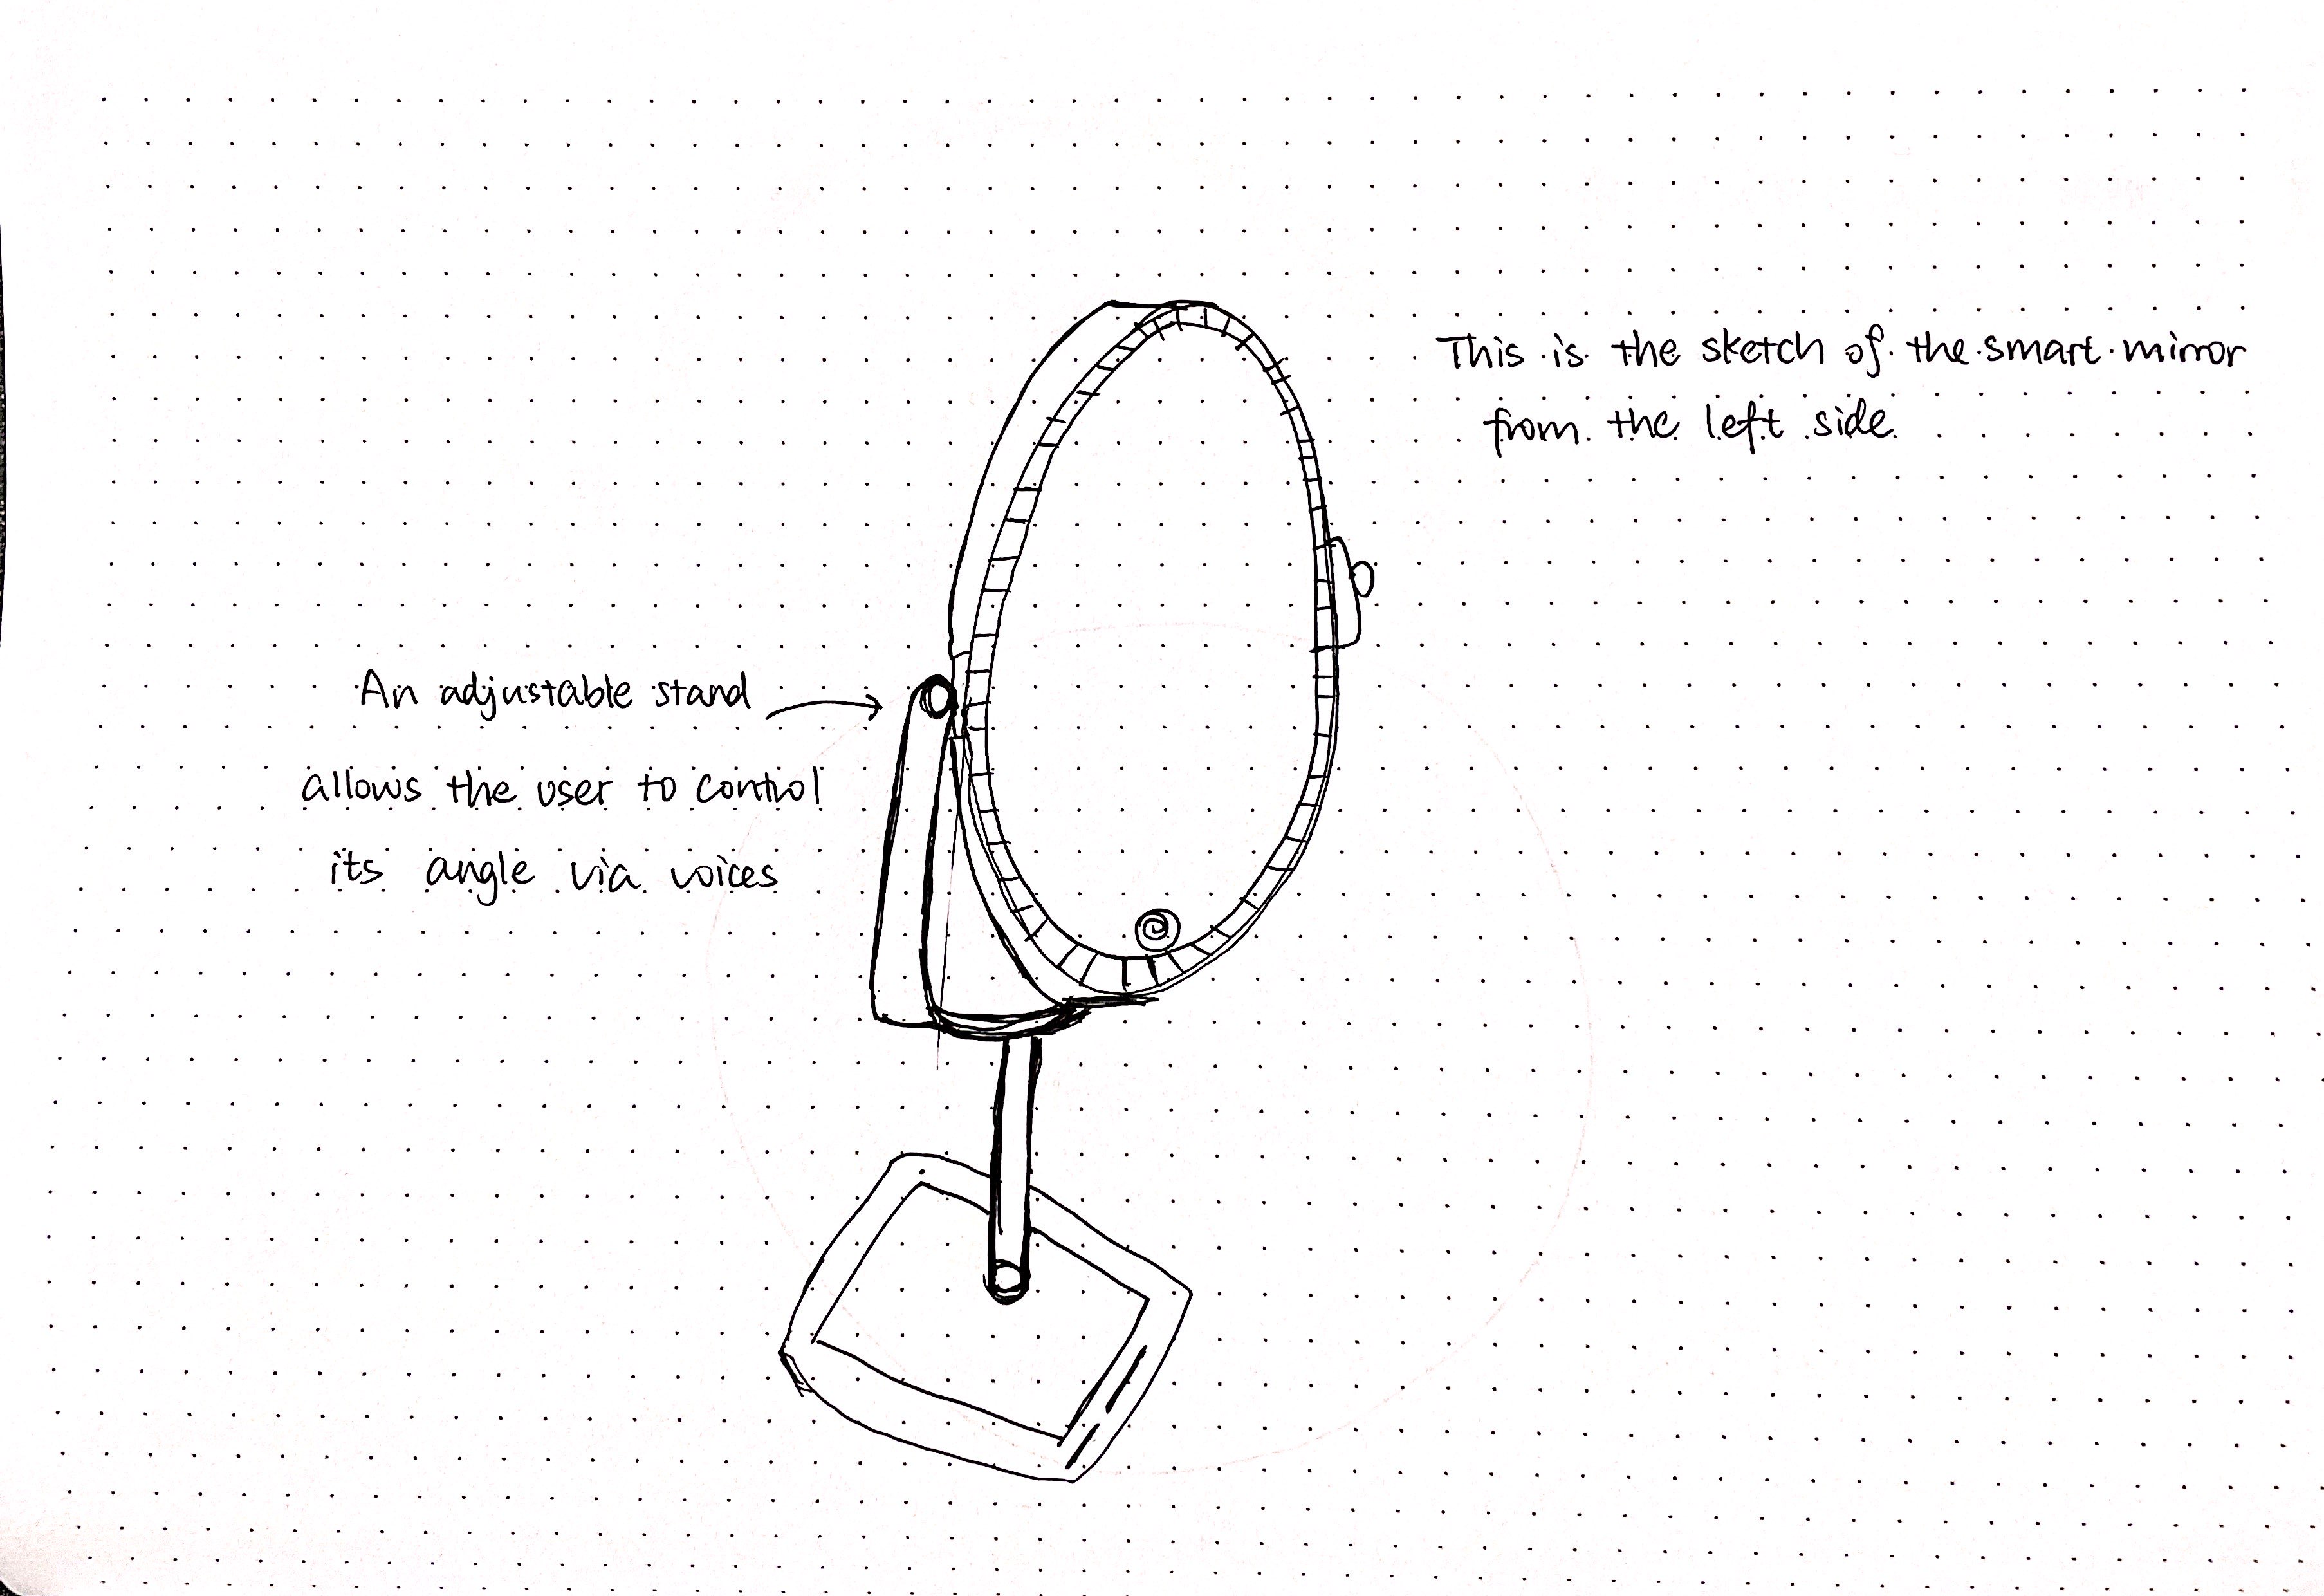 This is the sketch of the smart mirror
from the left side.
An adjustable stand
allows the user to control
its angle via voices